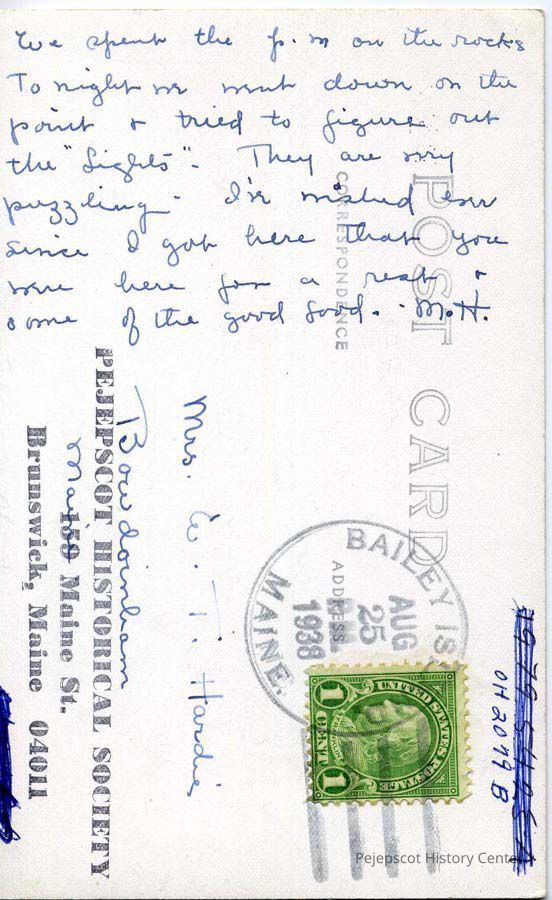 We spent the p.m on the rocks
To night we went down on the
point & tried to figure out
the "Lights". They are very
puzzling. I've wished ever
since I got here that you
were here for a rest &
some of the good food. M.H.
POST CARD
CORRESPONDENCE
ADDRESS
Mrs. W. T. Hardie
Bowdoinham
Maine
BAILEY IS
AUG
25
1938
MAINE.
UNITED STATES POSTAGE
1 CENT 1
PEJEPSCOT HISTORICAL SOCIETY
159 Maine St.
Brunswick, Maine 04011
OH 2079 B
Pejepscot History Center